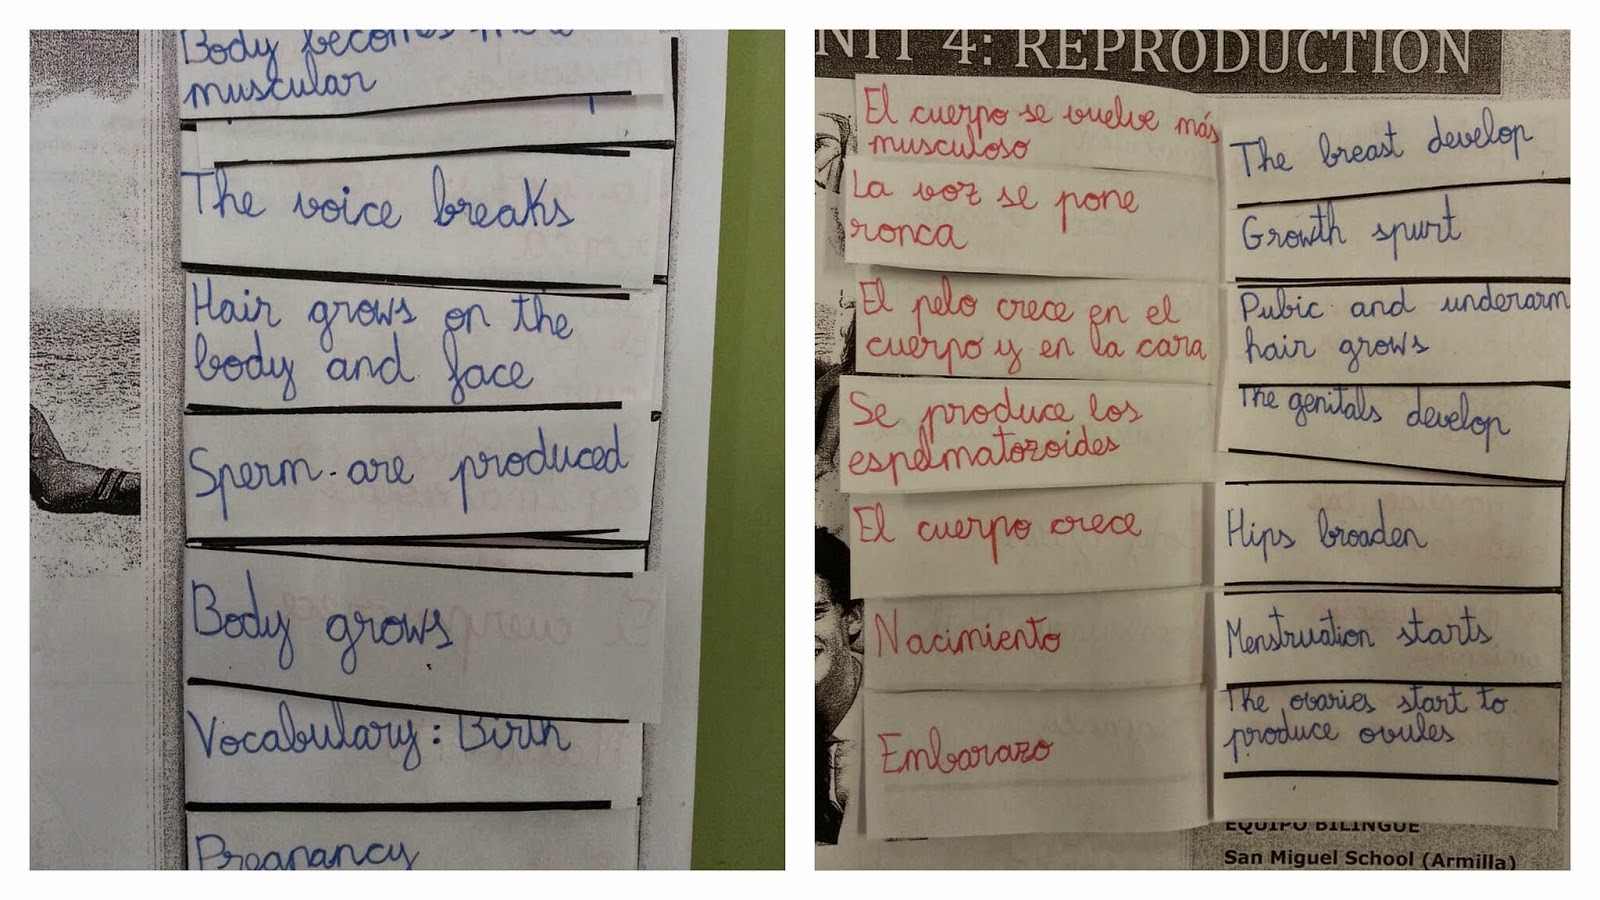 Body becomes more
muscular
The voice breaks
Hair grows on the
body and face
Sperm are produced
Body grows
Vocabulary: Birth
Pregnancy
NIT 4: REPRODUCTION
El cuerpo se vuelve más
musculoso
La voz se pone
ronca
El pelo crece en el
cuerpo y en la cara
Se produce los
espelmatozoides
El cuerpo crece
Nacimiento
Embarazo
The breast develop
Growth spurt
Pubic and underarm
hair grows
The genitals develop
Hips broaden
Menstruation starts
The ovaries start to
produce ovules
EQUIPO BILINGÜE
San Miguel School (Armilla)